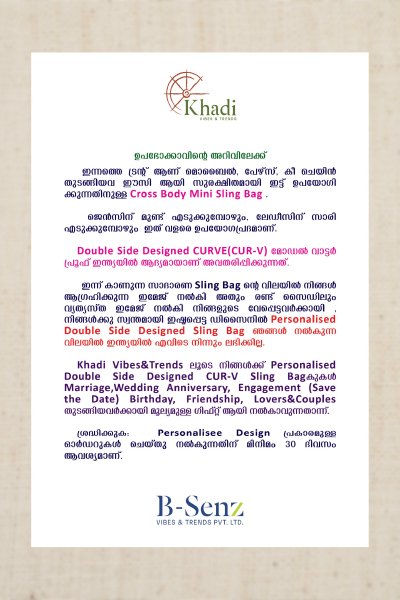 Khadi
VIBES & TRENDS
ഉപഭോക്താവിന്റെ അറിവിലേക്ക്
ഇന്നത്തെ ട്രന്റ് ആണ് മൊബൈൽ, പേഴ്സ്, കീ ചെയിൻ
തുടങ്ങിയവ ഈസി ആയി സുരക്ഷിതമായി ഇട്ട് ഉപയോഗി
ക്കുന്നതിനുള്ള Cross Body Mini Sling Bag .
ജെൻസിന് മുണ്ട് എടുക്കുമ്പോഴും, ലേഡീസിന് സാരി
എടുക്കുമ്പോഴും ഇത് വളരെ ഉപയോഗപ്രദമാണ്.
Double Side Designed CURVE(CUR-V) മോഡൽ വാട്ടർ
പ്രൂഫ് ഇന്ത്യയിൽ ആദ്യമായാണ് അവതരിപ്പിക്കുന്നത്.
ഇന്ന് കാണുന്ന സാദാരണ Sling Bag ന്റെ വിലയിൽ നിങ്ങൾ
ആഗ്രഹിക്കുന്ന ഇമേജ് നൽകി അതും രണ്ട് സൈഡിലും
വ്യത്യസ്ത ഇമേജ് നൽകി നിങ്ങളുടെ വേപ്പെട്ടവർക്കായി ,
നിങ്ങൾക്കു സ്വന്തമായി ഇഷ്ടപ്പെട്ട ഡിസൈനിൽ Personalised
Double Side Designed Sling Bag ഞങ്ങൾ നൽകുന്ന
വിലയിൽ ഇന്ത്യയിൽ എവിടെ നിന്നും ലഭിക്കില്ല.
Khadi Vibes&Trends ലൂടെ നിങ്ങൾക്ക് Personalised
Double Side Designed CUR-V Sling Bagകുകൾ
Marriage,Wedding Anniversary, Engagement (Save
the Date) Birthday, Friendship, Lovers&Couples
തുടങ്ങിയവർക്കായി മൂല്യമുള്ള ഗിഫ്റ്റ് ആയി നൽകാവുന്നതാന്ന്.
ശ്രദ്ധിക്കുക: Personalisee Design പ്രകാരമുള്ള
ഓർഡറുകൾ ചെയ്തു നൽകുന്നതിന് മിനിമം 30 ദിവസം
ആവശ്യമാണ്.
B-Senz
VIBES & TRENDS PVT. LTD.